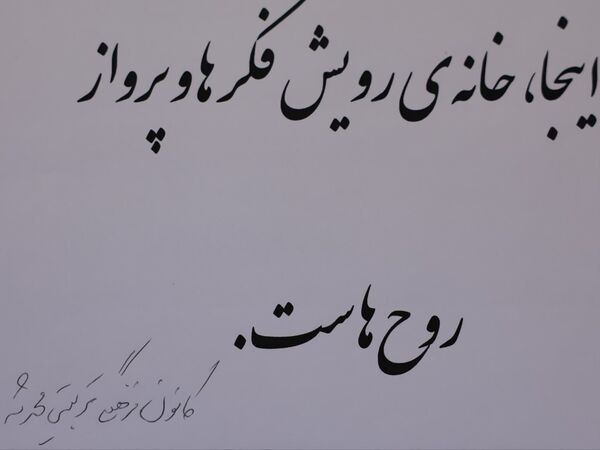 اینجا، خانه‌ی رویش فکرها و پرواز
روح هاست.
کانون فرهنگی تربیتی